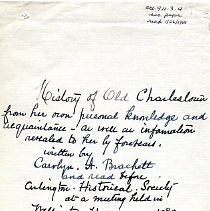 History of Old Charlestown
from her own personal knowledge and
acquaintance - as well as information
revealed to her by forbears.
written by
Carolyn A. Brackett
and read before
Arlington Historical Society
at a meeting held in